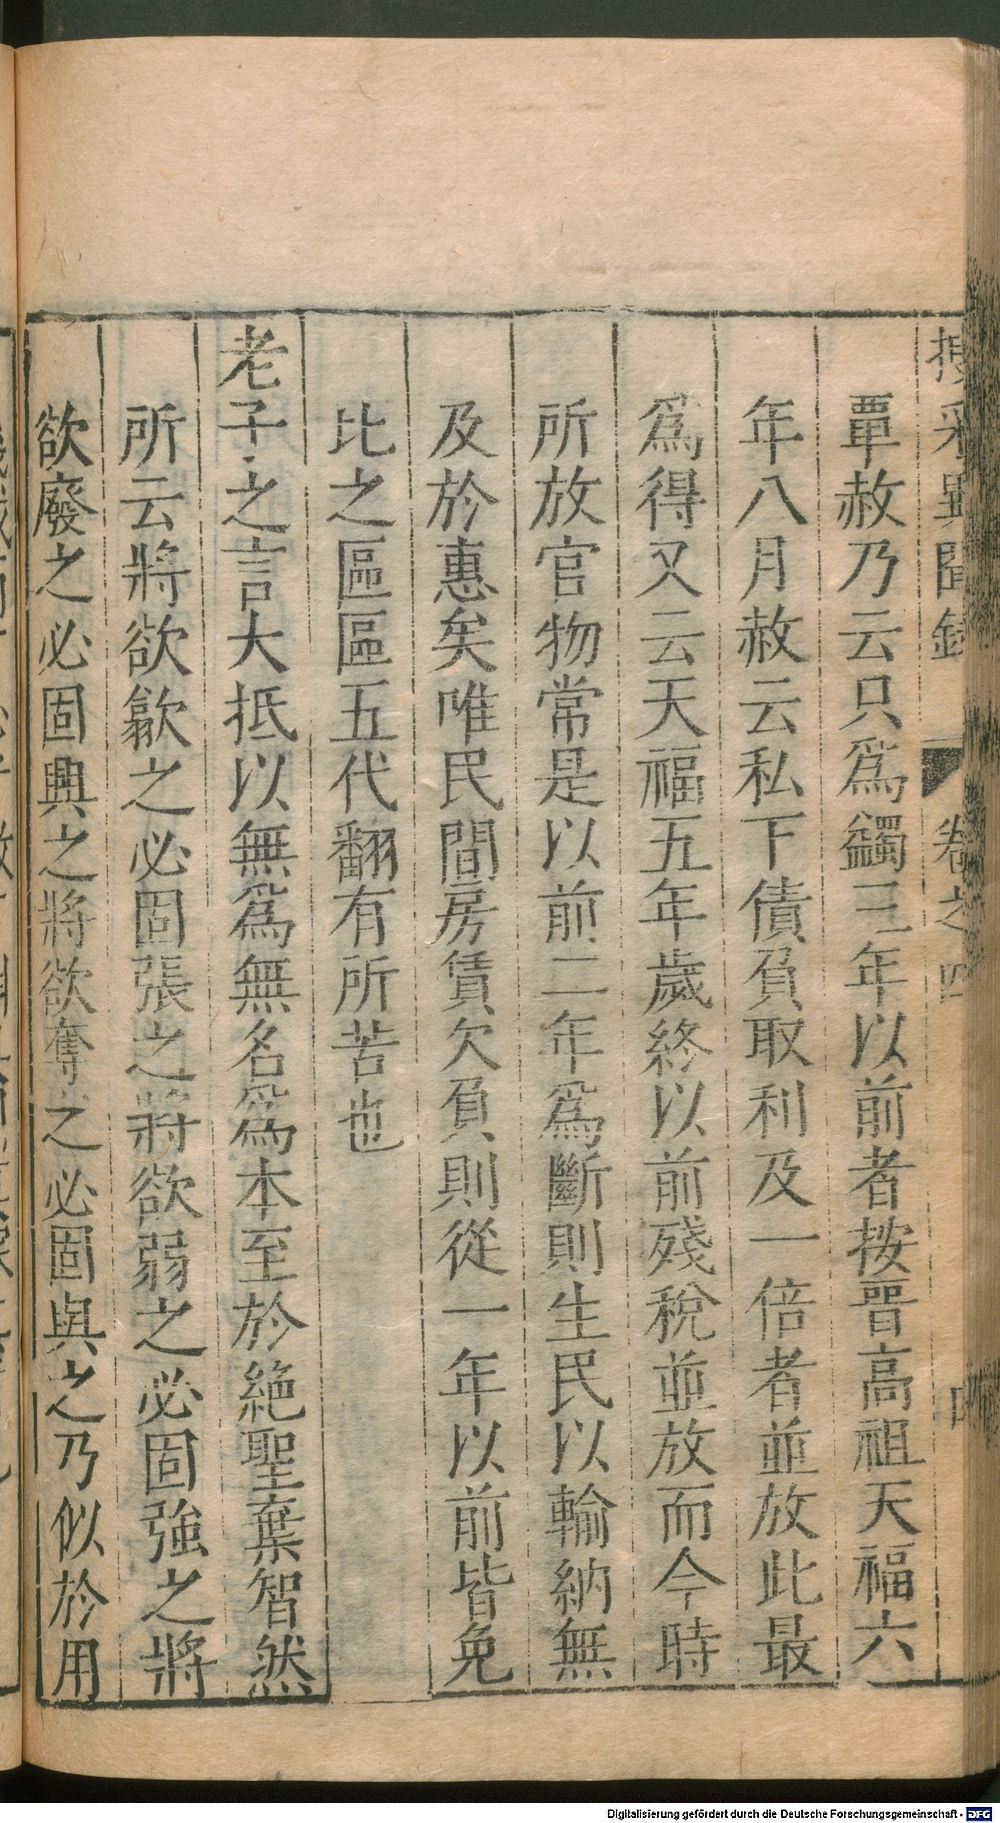 搜采異聞錄 卷之四 四
覃赦乃云只爲蠲三年以前者按晉高祖天福六
年八月赦云私下債負取利及一倍者並放此最
爲得又云天福五年歲終以前殘稅並放而今時
所放官物常是以前二年爲斷則生民以輸納無
及於惠矣唯民間房賃欠負則從一年以前皆免
比之區區五代翻有所苦也
老子之言大抵以無爲無名爲本至於絕聖棄智然
所云將欲歙之必固張之將欲弱之必固強之將
欲廢之必固興之將欲奪之必固與之乃似於用
Digitalisierung gefördert durch die Deutsche Forschungsgemeinschaft - DFG